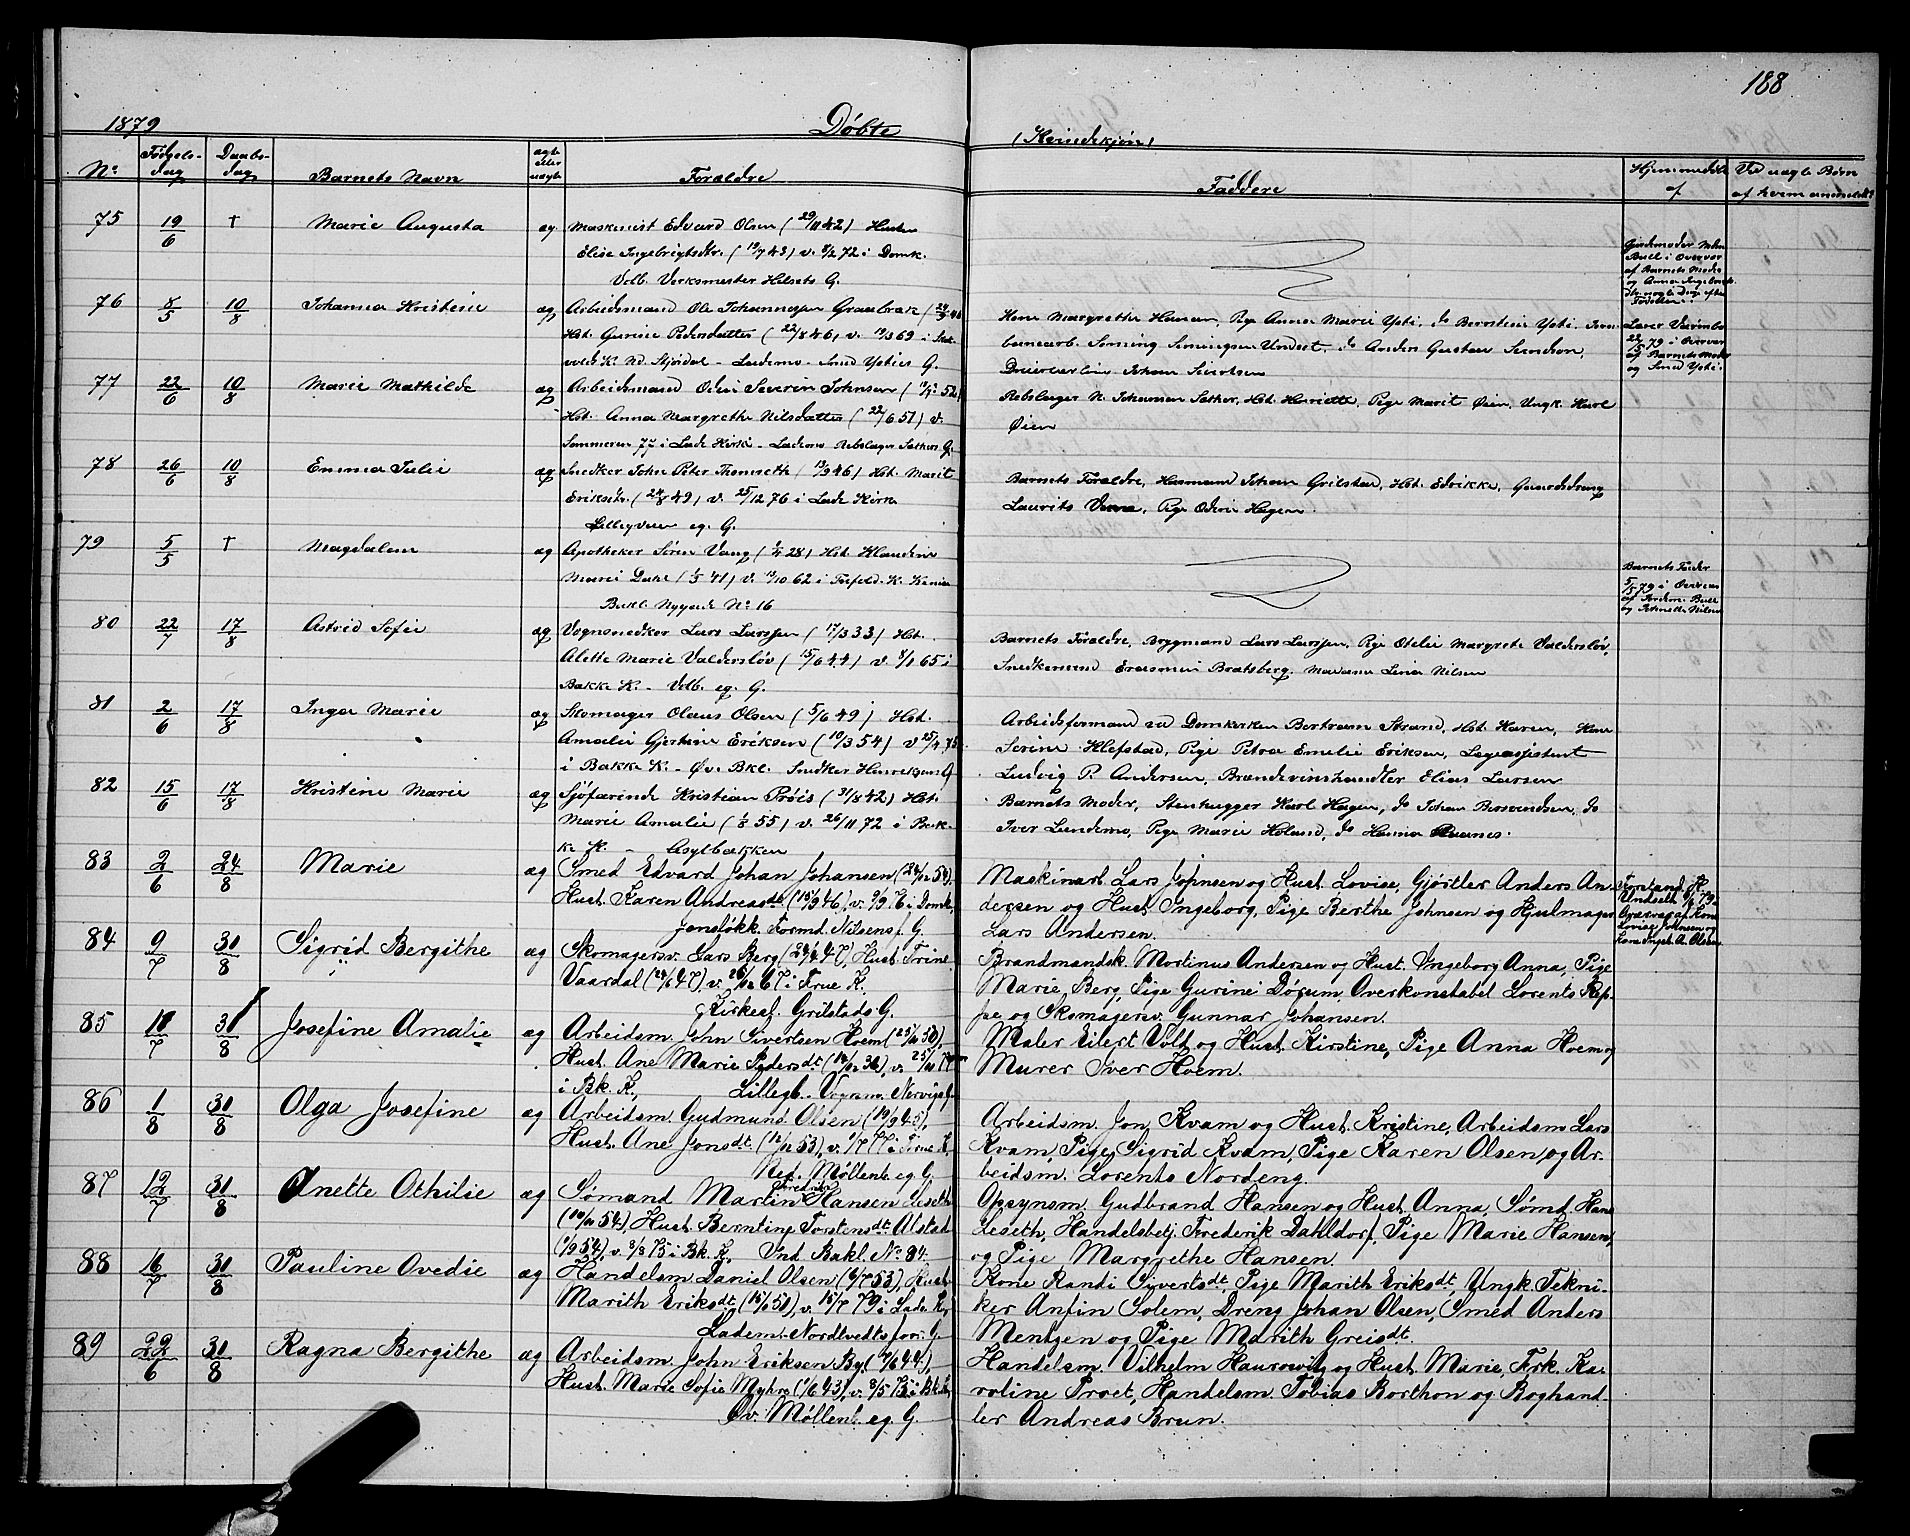 188
1879
Døbte
(Kvindekjøn)
No Fødsels-dag Daabs-dag Barnets Navn ægte eller uægte Forældre Faddere Hjemmedøbt af Ved uægte Børn af hvem anmeldt?
75 19/6 † Marie Augusta æg Maskinist Edvard Olsen (29/11 42) Hustru
Elise Ingebrigtsdtr. (19/7 43) v. 8/2 72 i Domk.
Vdb. Verksmester Hilsets G.
76 8/5 10/8 Johanna Kristine æg Arbeidsmand Ole Johannesen Graabræk
Hst. Gurine Pedersdatter (22/8 46) v. 19/3 69 i
K. Nd Stjørdal - Lademo - Smed Ysties G.
Kone Margrethe Hansen, Pige Anna Marie Ysti, do Berntine Ysti,
Søming Simingsen Undset, do Anders Gustav Svendsen,
Johan Sivertsen
77 22/6 10/8 Marie Mathilde æg Arbeidsmand Odin Severin Johnsen
Hst. Anna Margrethe Nilsdatter (22/6 51) v.
Sommeren 77 i Lade Kirke - Lademo Rebslager Sæthers G.
Rebslager N. Johansen Sæther, Hst. Henriette, Pige Marit Øien, Ungk. Karl
Øien
78 26/6 10/8 Emma Julie æg Snedker John Peter Thomseth (13/9 46) Hst. Marit
Eriksdtr. (24/8 49) v. 25/12 76 i Lade Kirke
Lillegveien eg. G.
Barnets Forældre, Husmand Johan Grilstad, Hst. Edrikke, Gaardsdreng
Laurits, Pige Oderi Hagen
79 5/5 † Magdalene æg Apotheker Sören Vang Hst. Klaudine
Marie Dahl (1/5 41) v. 13/10 62 i
Bakl. Nygade No 16
Barnets Fader
5/5 79 i Overvær
80 22/7 17/8 Astrid Sofie æg Vognsnedker Lars Larssen (17/3 33) Hst.
Alette Marie Valdersløv (15/6 44) v. 8/1 65 i
Bakke K. - Vdb. eg. G.
Barnets Forældre, Brygmand Lars Larssen, Pige Otelie Margrete Valdersløv,
Snedkersvend Erasmus Bratsberg, Madame Lina Nilsen
81 2/6 17/8 Inga Marie æg Skomager Olaus Olsen (5/6 49) Hst.
Amalie Gjertine Eriksen (10/3 54) v 25/4 75
i Bakke K. - Øv. Bkl. Snedker Henriksens G
Arbeidsformand ved Domkirken Bertram Strand, Hst. Karen, Kone
Serine Klefstad, Pige Petra Emelie Eriksen, Lægeassistent
Ludvig P. Andersen, Brændevinshandler Elias Larsen
82 15/6 17/8 Kristine Marie æg Sjöfarende Kristian Próis (31/8 42) Hst.
Marie Amalie (1/8 55) v. 26/11 72 i Bak-
ke K. - Asylbakken
Barnets Moder, Stenhugger Karl Hagen, do Johan Berntsen, do
Iver Lundemo, Pige Marie Høland, do Hanna Ruanes.
83 2/6 24/8 Marie æg Smed Edvard Johan Johansen
Hust. Karen Andreasdt. (18/9 46), v. 9/9 76 i Domk,
Jonsløkk. Formd. Nilsens G.
Maskinarb. Lars Johnsen og Hust. Lovise, Gjørtler Anders An-
dersen og Hust. Ingeborg, Pige Berthe Johnsen og Hjulmager
Lars Andersen.
84 9/7 31/8 Sigrid Bergithe æg Skomagersv. Lars Berg (24/4 47), Hust. Trine
Vaardal (24/6 47), v. 26/12 67 i Frue K.
Kirkeg. Grilstads G.
Brandmandsk. Martinus Andersen og Hust. Ingeborg Anna, Pige
Marie Berg, Pige Gurine Dørum, Overkonstabel Lorents Rep-
pe og Skomagersv. Gunnar Johansen.
85 11/7 31/8 Josefine Amalie æg Arbeidsm. John Sivertsen Hoem (25/10 50),
Hust. Ane Marie Pedersdt.
i Bk. K, Lillegb. Vognm. Nervigs
Maler Eilert Volt og Hust. Kirstine, Pige Anna Hoem og
Murer Iver Hoem.
86 1/8 31/8 Olga Josefine æg Arbeidsm. Gudmund Olsen (19/9 45),
Hust. Ane Jonsdt. (12/11 53), v. 1/7 77 i Frue K,
Ned. Møllenb. eg. G.
Arbeidsm. Jon Kvam og Hust. Kristine, Arbeidsm. Lars
Kvam, Pige Sigrid Kvam, Pige Karen Olsen og Ar-
beidsm. Lorents Nordeng.
87 12/7 31/8 Anette Othilie æg Sømand Martin Fredrik Hansen Leseth
(10/10 54), Hust. Berntine Torstensdt. Alstad
(1/9 54), v. 3/8 75 i Bk. K, Ind. Bakl. No 84.
Opsynsm. Gudbrand Hansen og Hust. Anna, Sømd. Hans
Leseth, Handelsbetj. Frederik Dahldorf, Pige Marie Hansen,
og Pige Margrethe Hansen.
88 16/7 31/8 Pauline Ovedie æg Handelsm. Daniel Olsen (6/7 53), Hust.
Marith Eriksdt. v. 15/7 79 i Lade K,
Ladem. Nordtvedts G.
Kone Randi Sivertsdt., Pige Marith Eriksdt., Ungk. Tekni-
ker Anfin Solem, Dreng Johan Olsen, Smed Anders
Mentzen og Pige Marith Greisdt.
89 22/6 31/8 Ragna Bergithe æg Arbeidsm. John Eriksen By,
Hust. Marie Sofie Myhre (1/6 43), v. 3/5 75 i Bk. K,
Øv. Møllenb. eg. G.
Handelsm. Vilhelm Haurowitz og Hust. Marie, Frk. Ka-
roline Proet, Handelsm. Tobias Borthon og Boghand
ler Andreas Brun.